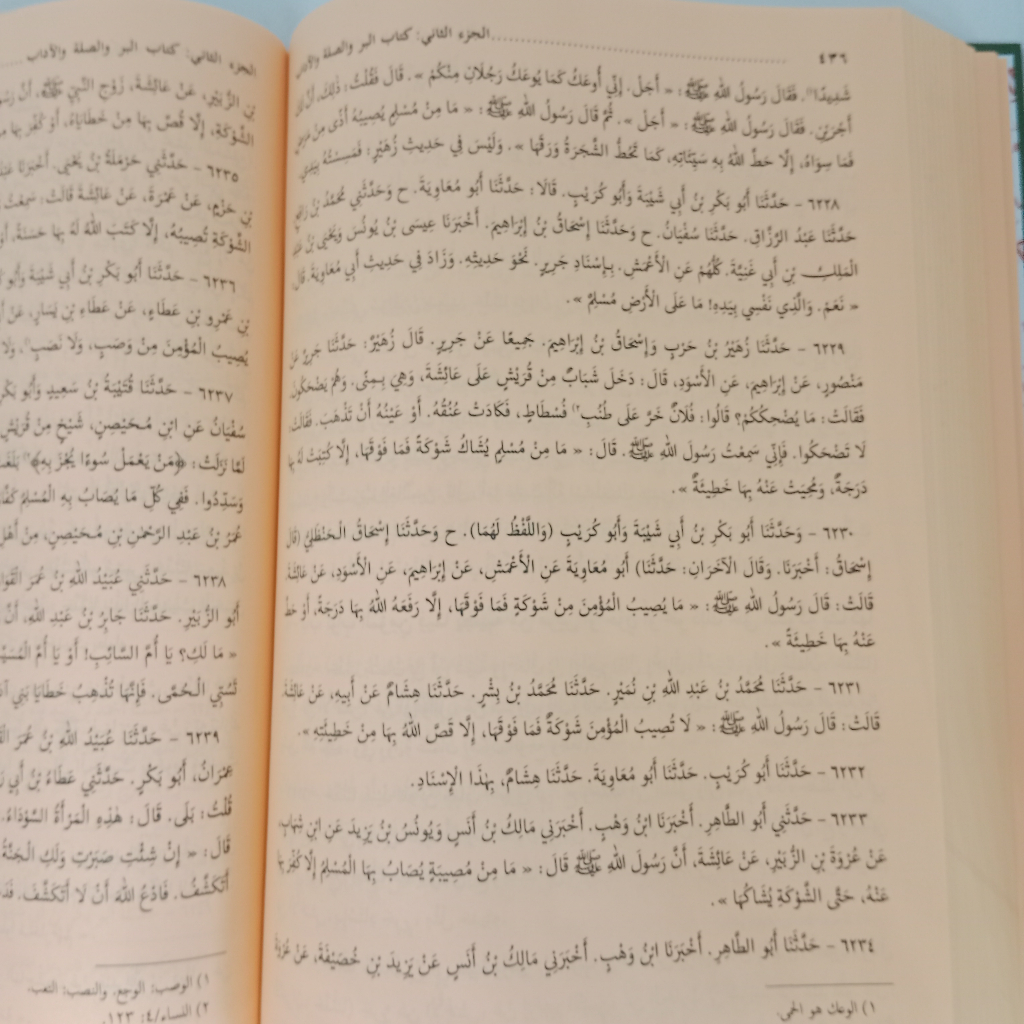 ٤٣٦ ........ الجزء الثاني: كتاب البر والصلة والآداب
شَدِيدًا١). فَقَالَ رَسُولُ اللهِ ﷺ: « أَجَلْ. إِنِّي أُوعَكُ كَمَا يُوعَكُ رَجُلَانِ مِنْكُمْ ». قَالَ فَقُلْتُ: ذٰلِكَ، أَنَّ لَكَ
أَجْرَيْنِ. فَقَالَ رَسُولُ اللهِ ﷺ: « أَجَلْ ». ثُمَّ قَالَ رَسُولُ اللهِ ﷺ: « مَا مِنْ مُسْلِمٍ يُصِيبُهُ أَذًى مِنْ مَرَضٍ
فَمَا سِوَاهُ، إِلَّا حَطَّ اللهُ بِهِ سَيِّئَاتِهِ، كَمَا تَحُطُّ الشَّجَرَةُ وَرَقَهَا ». وَلَيْسَ فِي حَدِيثِ زُهَيْرٍ: فَمَسِسْتُهُ بِيَدِي.
٦٢٢٨ - حَدَّثَنَا أَبُو بَكْرِ بْنُ أَبِي شَيْبَةَ وَأَبُو كُرَيْبٍ. قَالَا: حَدَّثَنَا أَبُو مُعَاوِيَةَ. ح وَحَدَّثَنِي مُحَمَّدُ بْنُ رَافِعٍ
حَدَّثَنَا عَبْدُ الرَّزَّاقِ. حَدَّثَنَا سُفْيَانُ. ح وَحَدَّثَنَا إِسْحَاقُ بْنُ إِبْرَاهِيمَ. أَخْبَرَنَا عِيسَى بْنُ يُونُسَ وَيَحْيَى بْنُ
الْمَلِكِ بْنِ أَبِي غَنِيَّةَ. كُلُّهُمْ عَنِ الْأَعْمَشِ. بِإِسْنَادِ جَرِيرٍ. نَحْوَ حَدِيثِهِ. وَزَادَ فِي حَدِيثِ أَبِي مُعَاوِيَةَ: قَالَ
« نَعَمْ. وَالَّذِي نَفْسِي بِيَدِهِ! مَا عَلَى الْأَرْضِ مُسْلِمٌ ».
٦٢٢٩ - حَدَّثَنَا زُهَيْرُ بْنُ حَرْبٍ وَإِسْحَاقُ بْنُ إِبْرَاهِيمَ. جَمِيعًا عَنْ جَرِيرٍ. قَالَ زُهَيْرٌ: حَدَّثَنَا جَرِيرٌ عَنْ
مَنْصُورٍ، عَنْ إِبْرَاهِيمَ، عَنِ الْأَسْوَدِ، قَالَ: دَخَلَ شَبَابٌ مِنْ قُرَيْشٍ عَلَى عَائِشَةَ، وَهِيَ بِمِنًى. وَهُمْ يَضْحَكُونَ.
فَقَالَتْ: مَا يُضْحِكُكُمْ؟ قَالُوا: فُلَانٌ خَرَّ عَلَى طُنُبِ٢) فُسْطَاطٍ، فَكَادَتْ عُنُقُهُ. أَوْ عَيْنُهُ أَنْ تَذْهَبَ. فَقَالَتْ:
لَا تَضْحَكُوا. فَإِنِّي سَمِعْتُ رَسُولَ اللهِ ﷺ. قَالَ: « مَا مِنْ مُسْلِمٍ يُشَاكُ شَوْكَةً فَمَا فَوْقَهَا، إِلَّا كُتِبَتْ لَهُ بِهَا
دَرَجَةٌ، وَمُحِيَتْ عَنْهُ بِهَا خَطِيئَةٌ ».
٦٢٣٠ - وَحَدَّثَنَا أَبُو بَكْرِ بْنُ أَبِي شَيْبَةَ وَأَبُو كُرَيْبٍ (وَاللَّفْظُ لَهُمَا). ح وَحَدَّثَنَا إِسْحَاقُ الْحَنْظَلِيُّ (قَالَ
إِسْحَاقُ: أَخْبَرَنَا. وَقَالَ الْآخَرَانِ: حَدَّثَنَا) أَبُو مُعَاوِيَةَ عَنِ الْأَعْمَشِ، عَنْ إِبْرَاهِيمَ، عَنِ الْأَسْوَدِ، عَنْ عَائِشَةَ.
قَالَتْ: قَالَ رَسُولُ اللهِ ﷺ: « مَا يُصِيبُ الْمُؤْمِنَ مِنْ شَوْكَةٍ فَمَا فَوْقَهَا، إِلَّا رَفَعَهُ اللهُ بِهَا دَرَجَةً، أَوْ حَطَّ
عَنْهُ بِهَا خَطِيئَةً ».
٦٢٣١ - حَدَّثَنَا مُحَمَّدُ بْنُ عَبْدِ اللهِ بْنِ نُمَيْرٍ. حَدَّثَنَا مُحَمَّدُ بْنُ بِشْرٍ. حَدَّثَنَا هِشَامٌ عَنْ أَبِيهِ، عَنْ عَائِشَةَ.
قَالَتْ: قَالَ رَسُولُ اللهِ ﷺ: « لَا تُصِيبُ الْمُؤْمِنَ شَوْكَةٌ فَمَا فَوْقَهَا، إِلَّا قَصَّ اللهُ بِهَا مِنْ خَطِيئَتِهِ ».
٦٢٣٢ - حَدَّثَنَا أَبُو كُرَيْبٍ. حَدَّثَنَا أَبُو مُعَاوِيَةَ. حَدَّثَنَا هِشَامٌ، بِهٰذَا الْإِسْنَادِ.
٦٢٣٣ - حَدَّثَنِي أَبُو الطَّاهِرِ. أَخْبَرَنَا ابْنُ وَهْبٍ. أَخْبَرَنِي مَالِكُ بْنُ أَنَسٍ وَيُونُسُ بْنُ يَزِيدَ عَنِ ابْنِ شِهَابٍ،
عَنْ عُرْوَةَ بْنِ الزُّبَيْرِ، عَنْ عَائِشَةَ، أَنَّ رَسُولَ اللهِ ﷺ قَالَ: « مَا مِنْ مُصِيبَةٍ يُصَابُ بِهَا الْمُسْلِمُ إِلَّا كُفِّرَ بِهَا
عَنْهُ، حَتَّى الشَّوْكَةِ يُشَاكُهَا ».
٦٢٣٤ - حَدَّثَنَا أَبُو الطَّاهِرِ. أَخْبَرَنَا ابْنُ وَهْبٍ. أَخْبَرَنِي مَالِكُ بْنُ أَنَسٍ عَنْ يَزِيدَ بْنِ خُصَيْفَةَ، عَنْ عُرْوَةَ
١) الوعك هو الحمى.
الجزء الثاني: كتاب البر والصلة والآداب ....
بْنِ الزُّبَيْرِ، عَنْ عَائِشَةَ، زَوْجِ النَّبِيِّ ﷺ، أَنَّ رَسُو
الشَّوْكَةِ، إِلَّا قُصَّ بِهَا مِنْ خَطَايَاهُ، أَوْ كُفِّرَ بِهَا
٦٢٣٥ - حَدَّثَنِي حَرْمَلَةُ بْنُ يَحْيَى. أَخْبَرَنَا
بْنِ حَزْمٍ، عَنْ عَمْرَةَ، عَنْ عَائِشَةَ قَالَتْ: سَمِعْتُ
الشَّوْكَةِ تُصِيبُهُ، إِلَّا كَتَبَ اللهُ لَهُ بِهَا حَسَنَةً، أَوْ
٦٢٣٦ - حَدَّثَنَا أَبُو بَكْرِ بْنُ أَبِي شَيْبَةَ وَأَبُو
بْنِ عَمْرِو بْنِ عَطَاءٍ، عَنْ عَطَاءِ بْنِ يَسَارٍ، عَنْ
يُصِيبُ الْمُؤْمِنَ مِنْ وَصَبٍ، وَلَا نَصَبٍ١)، وَلَا
٦٢٣٧ - حَدَّثَنَا قُتَيْبَةُ بْنُ سَعِيدٍ وَأَبُو بَكْرِ
سُفْيَانُ عَنِ ابْنِ مُحَيْصِنٍ، شَيْخٍ مِنْ قُرَيْشٍ
لَمَّا نَزَلَتْ: ﴿مَنْ يَعْمَلْ سُوءًا يُجْزَ بِهِ﴾٢) بَلَغَتْ
وَسَدِّدُوا. فَفِي كُلِّ مَا يُصَابُ بِهِ الْمُسْلِمُ كَفَّا
عُمَرُ بْنُ عَبْدِ الرَّحْمٰنِ بْنِ مُحَيْصِنٍ، مِنْ أَهْلِ
٦٢٣٨ - حَدَّثَنِي عُبَيْدُ اللهِ بْنُ عُمَرَ الْقَوَا
أَبُو الزُّبَيْرِ. حَدَّثَنَا جَابِرُ بْنُ عَبْدِ اللهِ، أَنَّ
« مَا لَكِ؟ يَا أُمَّ السَّائِبِ! أَوْ يَا أُمَّ الْمُسَيَّ
تَسُبِّي الْحُمَّى. فَإِنَّهَا تُذْهِبُ خَطَايَا بَنِي آدَ
٦٢٣٩ - حَدَّثَنَا عُبَيْدُ اللهِ بْنُ عُمَرَ
عِمْرَانُ، أَبُو بَكْرٍ. حَدَّثَنِي عَطَاءُ بْنُ أَبِي
قُلْتُ: بَلَى. قَالَ: هٰذِهِ الْمَرْأَةُ السَّوْدَاءُ.
قَالَ: « إِنْ شِئْتِ صَبَرْتِ وَلَكِ الْجَنَّةُ
أَتَكَشَّفُ. فَادْعُ اللهَ أَنْ لَا أَتَكَشَّفَ. فَدَ
١) الوصب: الوجع. والنصب: التعب.
٢) النساء/٤: ١٢٣.